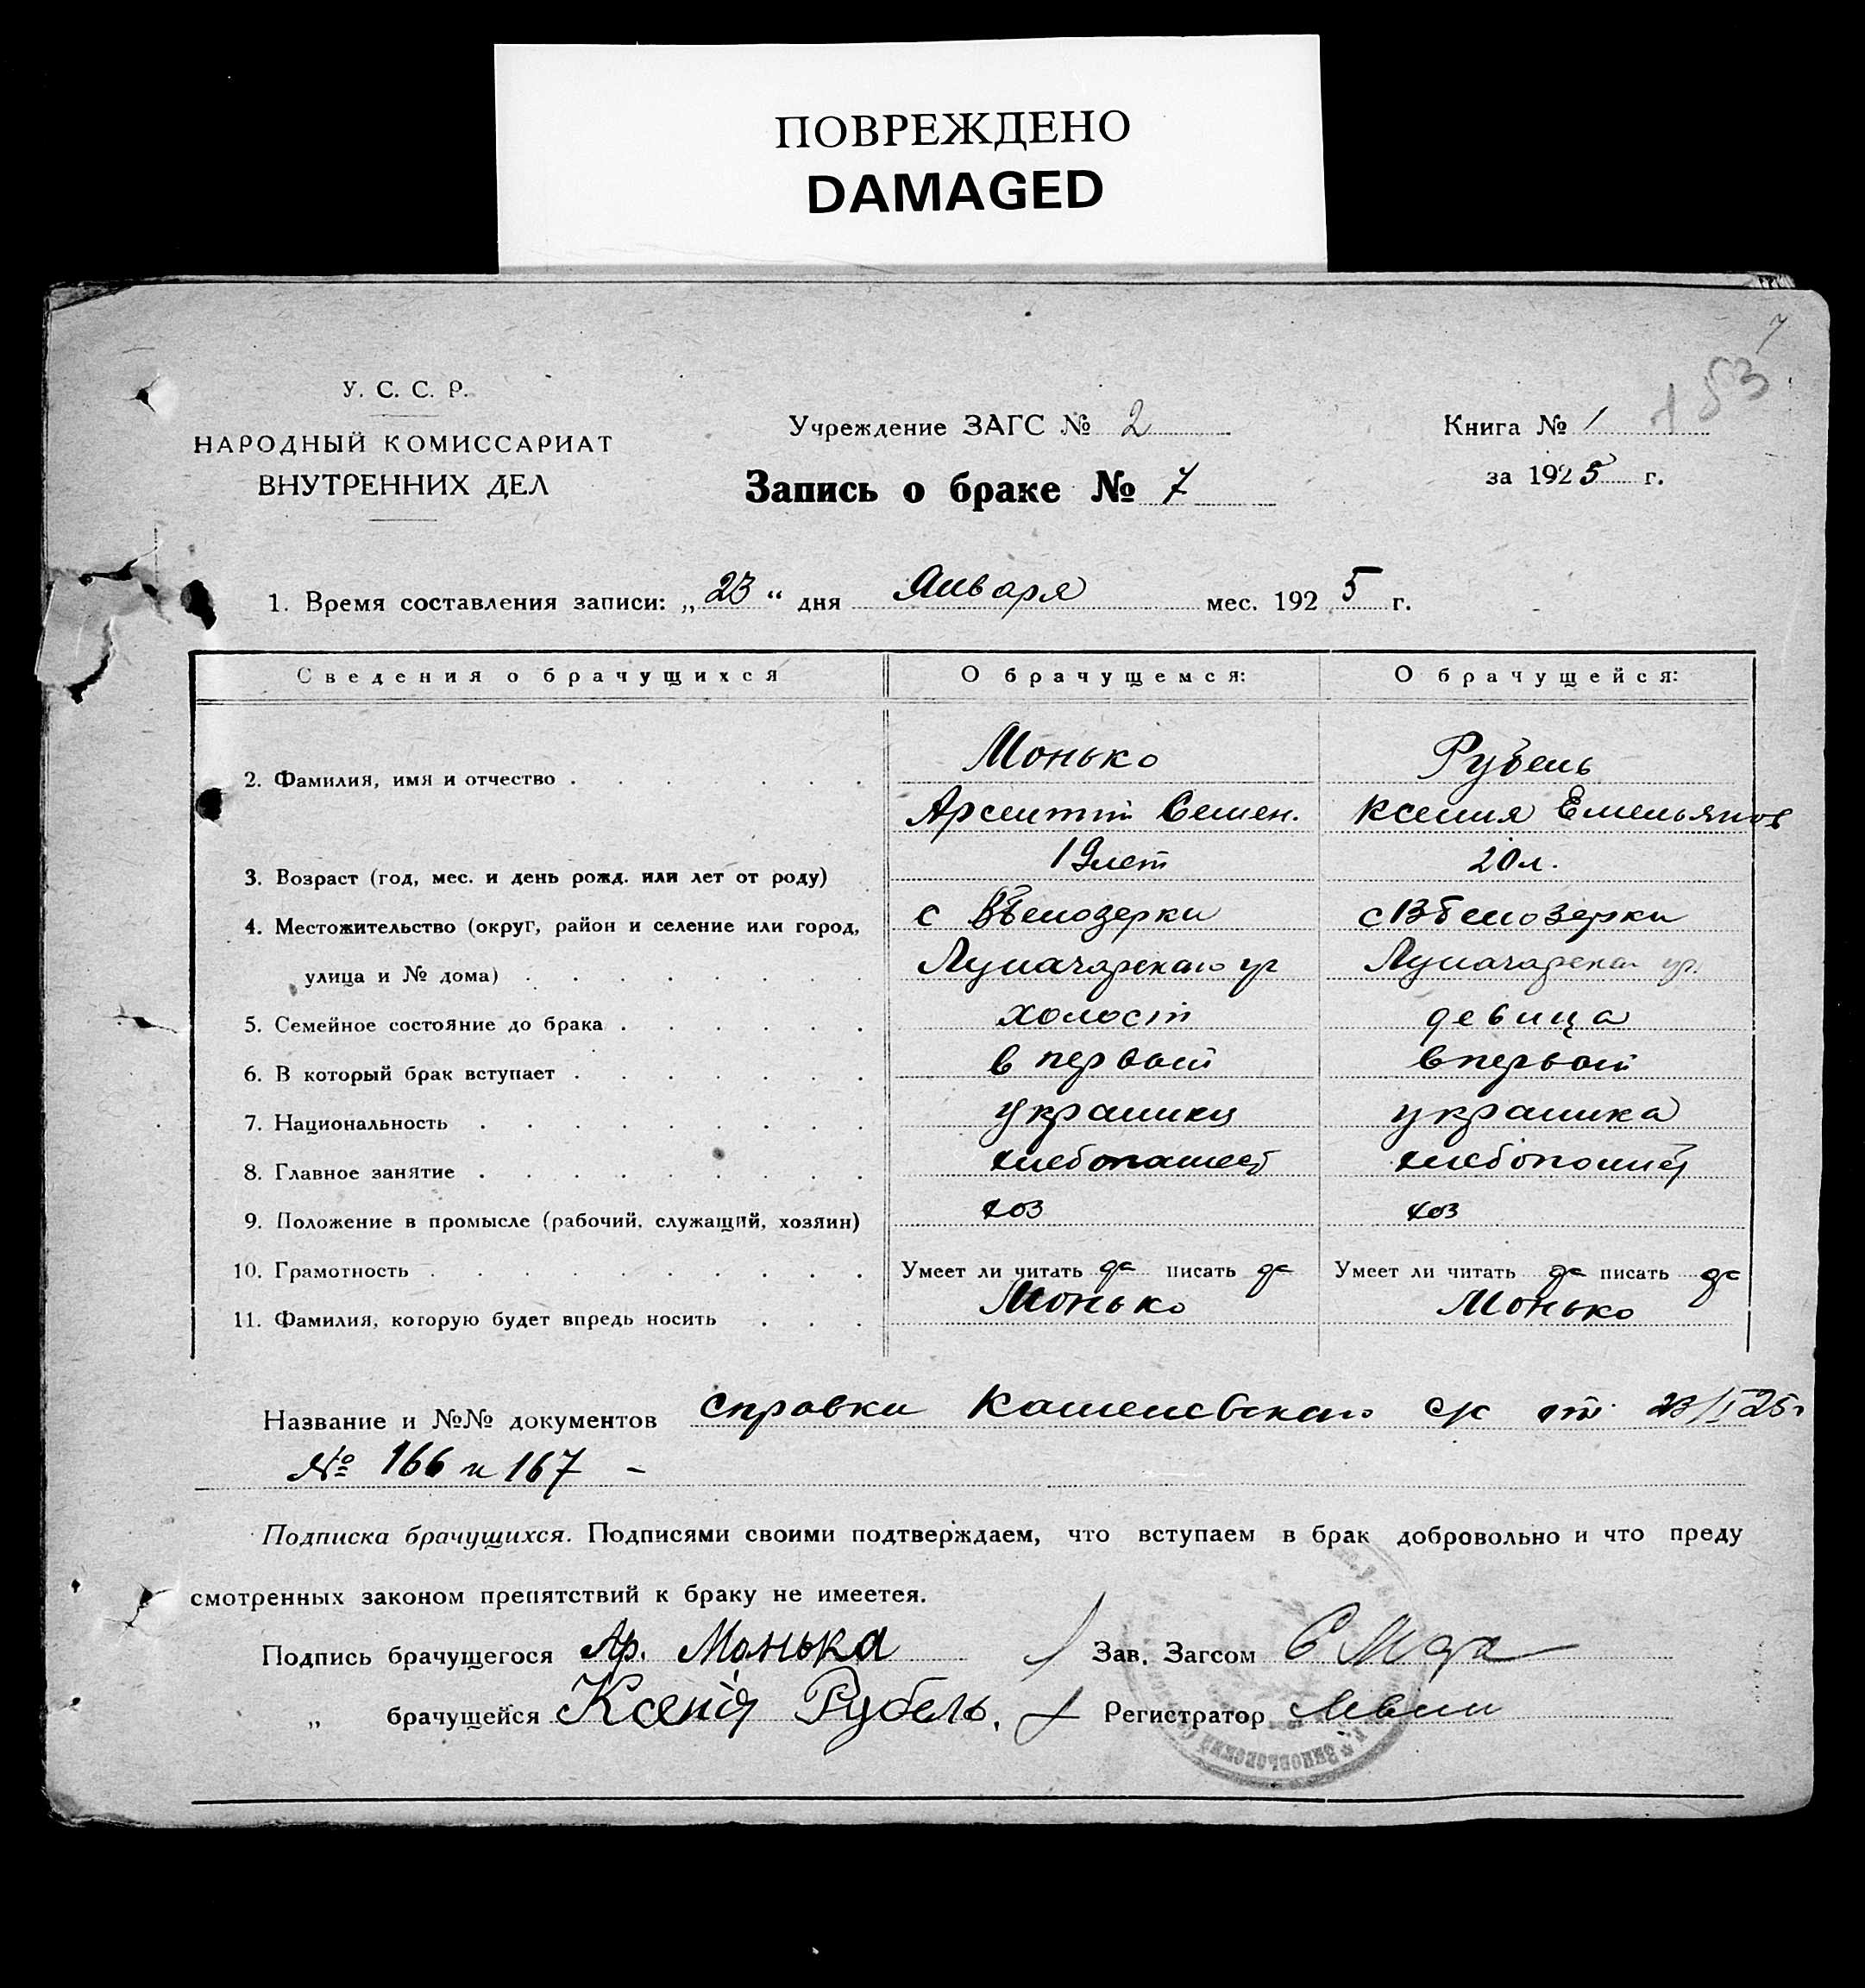 ПОВРЕЖДЕНО
DAMAGED
7
183
У. С. С. Р.
НАРОДНЫЙ КОМИССАРИАТ
ВНУТРЕННИХ ДЕЛ
Учреждение ЗАГС № 2
Запись о браке № 7
Книга № 1
за 1925 г.
1. Время составления записи: „23“ дня Января мес. 1925 г.
Сведения о брачущихся О брачущемся: О брачущейся:
2. Фамилия, имя и отчество Монько Рубель
Арсентий Семен. Ксения Емельянов
3. Возраст (год, мес. и день рожд. или лет от роду) 19 лет 20 л.
4. Местожительство (округ, район и селение или город, с Белозерки с Белозерки
улица и № дома) Луначарского Луначарского
5. Семейное состояние до брака холост девица
6. В который брак вступает в первый в первый
7. Национальность украинец украинка
8. Главное занятие хлебопашец
9. Положение в промысле (рабочий, служащий, хозяин) хоз хоз
10. Грамотность Умеет ли читать да писать да Умеет ли читать да писать да
11. Фамилия, которую будет впредь носить Монько Монько
Название и №№ документов справки с/с от 23/I 25 г
№ 166 и 167 -
Подписка брачущихся. Подписями своими подтверждаем, что вступаем в брак добровольно и что преду
смотренных законом препятствий к браку не имеется.
Подпись брачущегося Ар. Монька Зав. Загсом
„ брачущейся Ксенія Рубель. Регистратор Левин